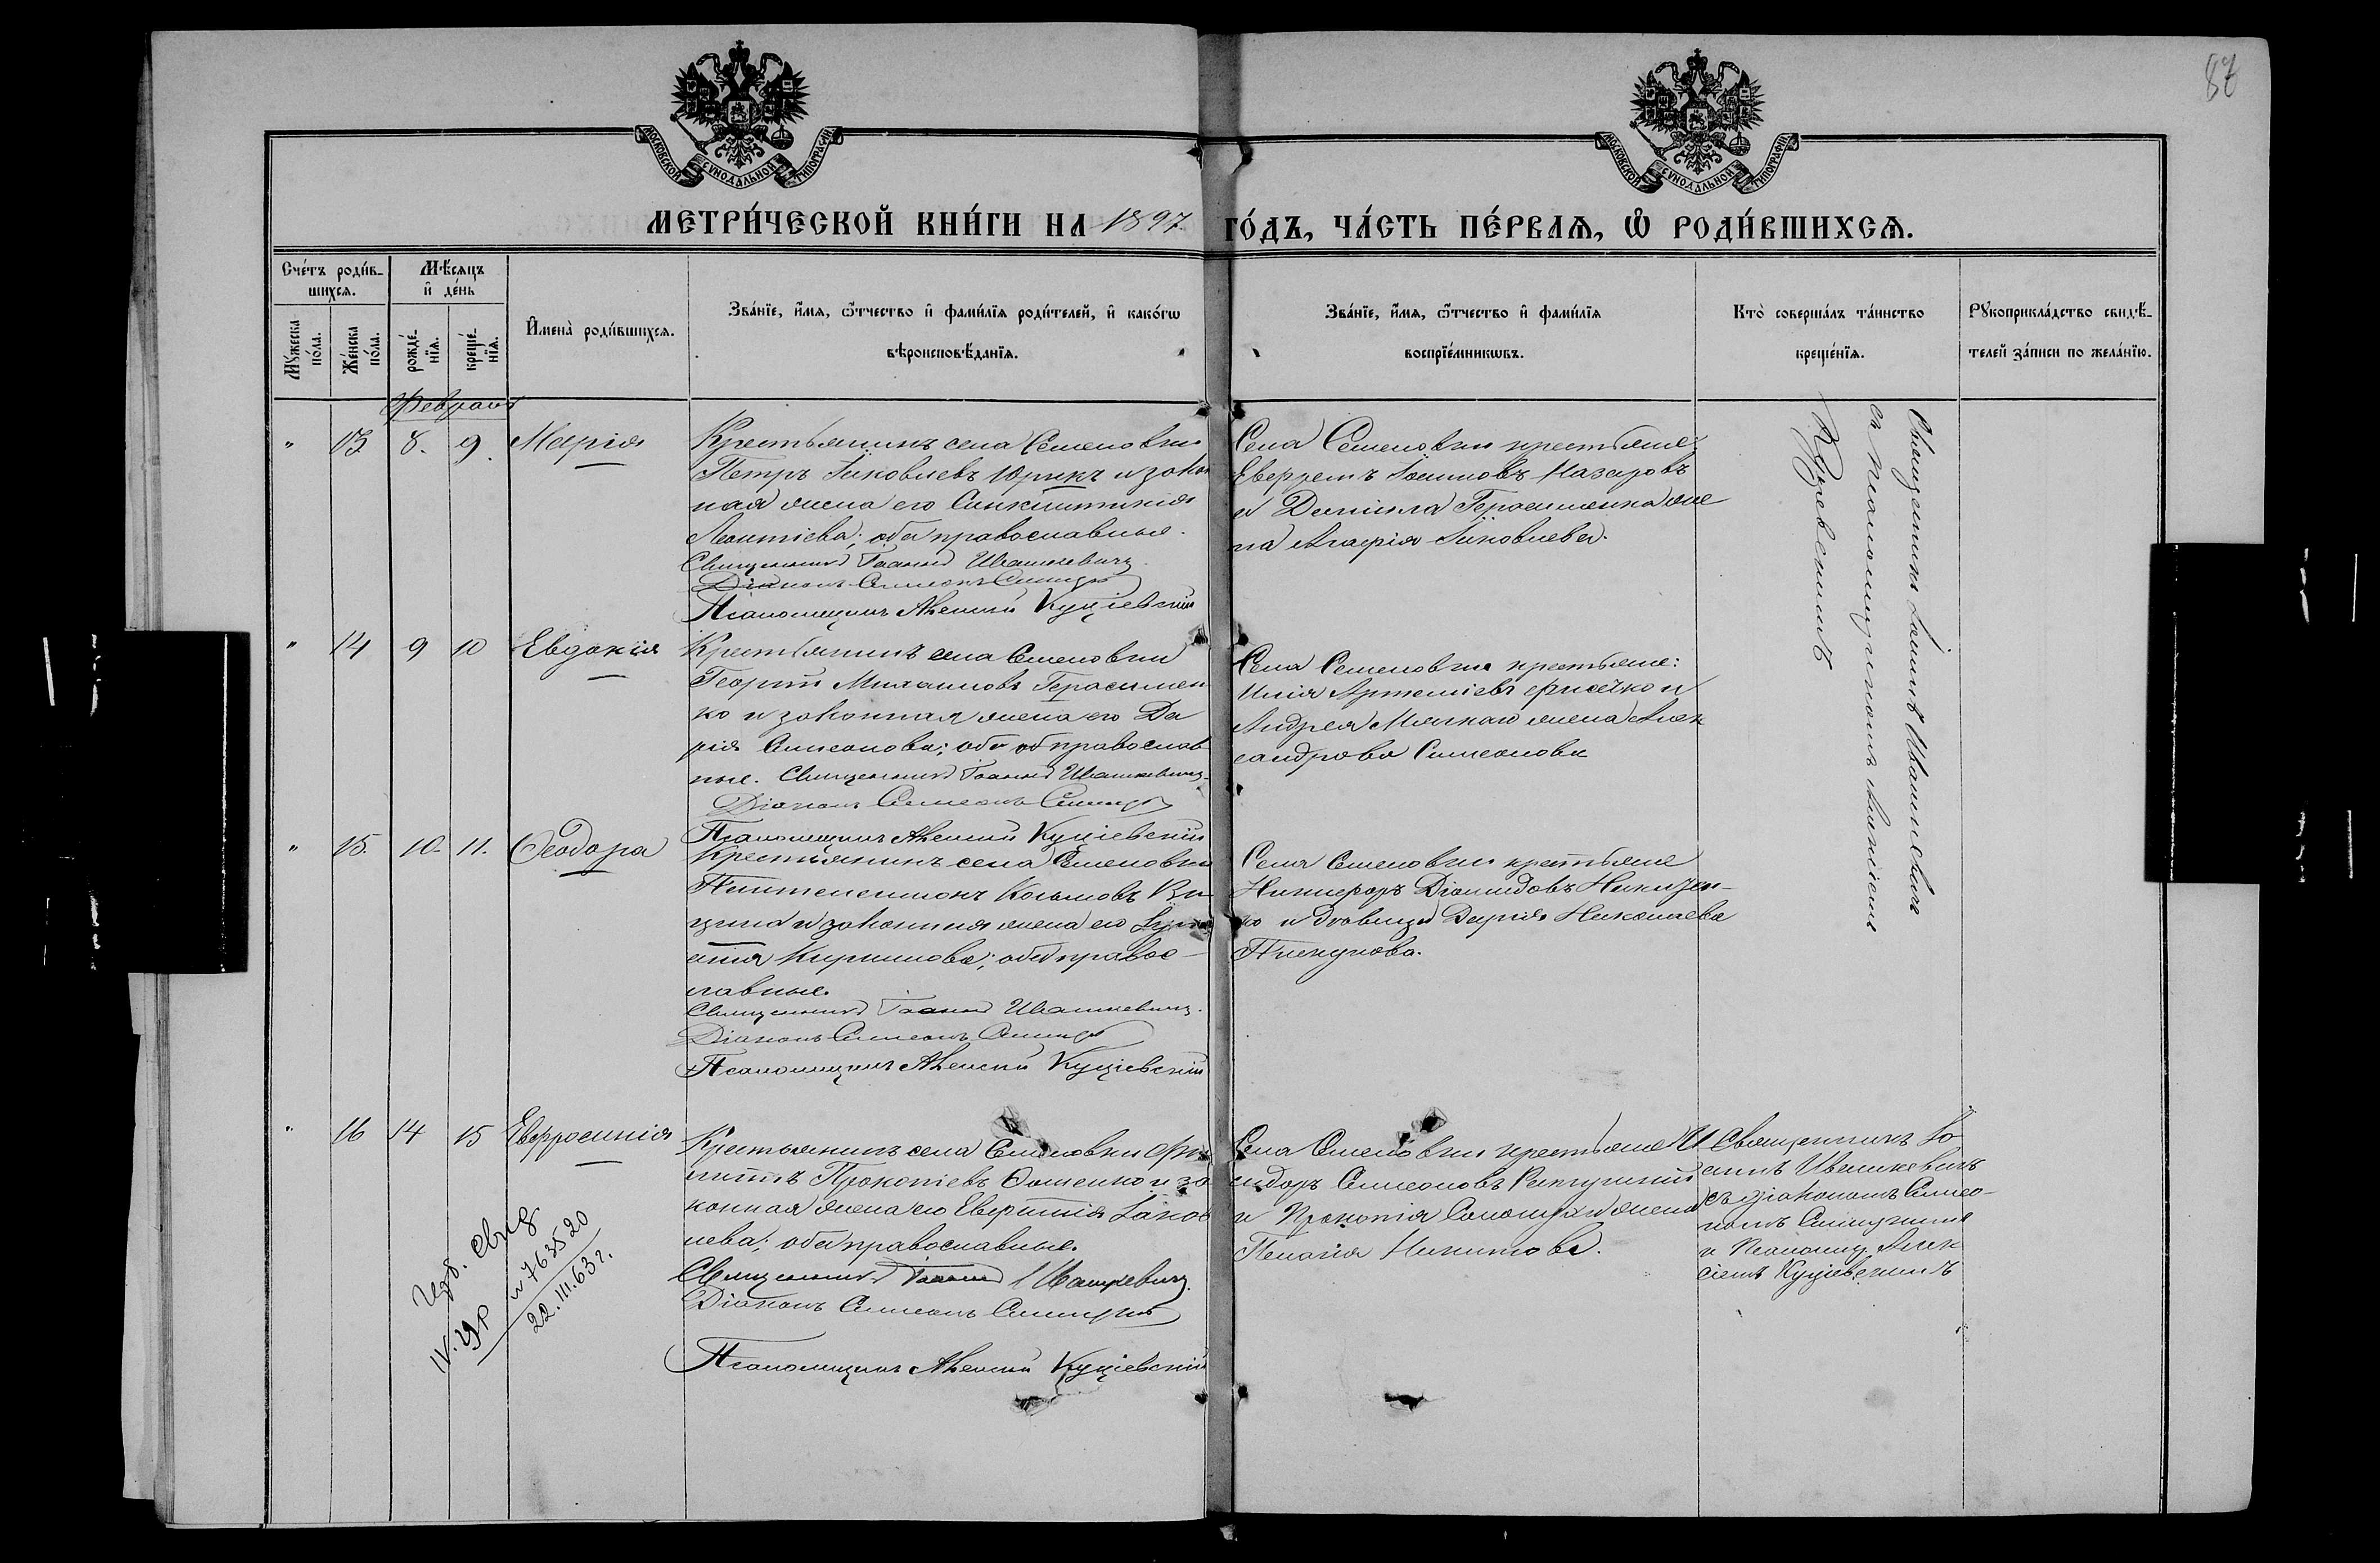 87
МОСКОВСКОЙ СѴНОДАЛЬНОЙ ТИПОГРАФІИ
МОСКОВСКОЙ СѴНОДАЛЬНОЙ ТИПОГРАФІИ
МЕТРИ́ЧЕСКОЙ КНИ́ГИ НА 1897 ГО́ДЪ, ЧА́СТЬ ПЕ́РВАѦ, Ѡ҆ РОДИ́ВШИХСѦ.
Сче́тъ роди́в-
шихсѧ.
Мѣ́сѧцъ
и҆ де́нь
Мꙋжеска
по́ла.
Же́нска
по́ла.
рожде́-
нїѧ.
креще́-
нїѧ.
И҆мена̀ роди́вшихсѧ.
Зва́нїе, и҆́мѧ, ѻ҆́тчество и҆ фами́лїѧ роди́телей, и҆ како́гѡ
вѣроисповѣ́данїѧ.
Зва́нїе, и҆́мѧ, ѻ҆́тчество и҆ фами́лїѧ
воспрїе́мникѡвъ.
Кто̀ соверша́лъ та́инство
креще́нїѧ.
Рꙋкоприкла́дство свидѣ́-
телей за́писи по жела́нїю.
Февраль
" 13 8. 9. Марія
Крестьянинъ села Семеновки
Петръ Іаковлевъ Юрикъ и закон
ная жена его Синклитикія
Леонтіева; оба православные.
Священникъ Іоаннъ Ивашкевичъ
Діаконъ Симеонъ
Псаломщикъ Алексій Куціевскій
Села Семеновки крестьяне:
Іоанновъ Назаровъ
и Даніила Герасименка же
на Агафія Іаковлева.
Священникъ Іоаннъ Ивашкевичъ
съ псаломщикомъ Алексіемъ
Куцевскимъ
" 14 9 10 Евдокія
Крестьянинъ села Семеновки
Георгій Михаиловъ Герасимен
ко и законная жена его Да
рія Симеонова; оба православ
ные. Священникъ Іоаннъ Ивашкевичъ.
Діаконъ Симеонъ
Псаломщикъ Алексій Куціевскій
Села Семеновки крестьяне:
Илія Артеміевъ и
Андрея жена Алек
сандрова Симеонова
" 15. 10. 11. Ѳеодора
Крестьянинъ села Семеновки
Пантелеимонъ Косьмовъ
и законная жена его
Кириллова; оба правос-
лавные.
Священникъ Іоаннъ Ивашкевичъ.
Діаконъ Симеонъ
Псаломщикъ Алексій Куціевскій
Села Семеновки крестьяне
Никифоръ Діомидовъ
ко и вдовица Дарія Николаева
" 16 14 15 Евфросинія
Крестьянинъ села Семеновки Фи
липпъ Прокопіевъ Ѳоменко и за
конная жена его Іаков
лева; оба православные.
Священникъ Іоаннъ Ивашкевичъ.
Діаконъ Симеонъ
Псаломщикъ Алексій Куціевскій
Села Семеновки крестьяне И
сидоръ Симеоновъ
и Прокопія жена
Пелагія Никитова.
Священникъ Іо
аннъ Ивашкевичъ
съ діакономъ Симео-
номъ
и псаломщ. Алек
сіемъ Куціевскимъ
свид
IV. УР № 763520
22.III.63г.